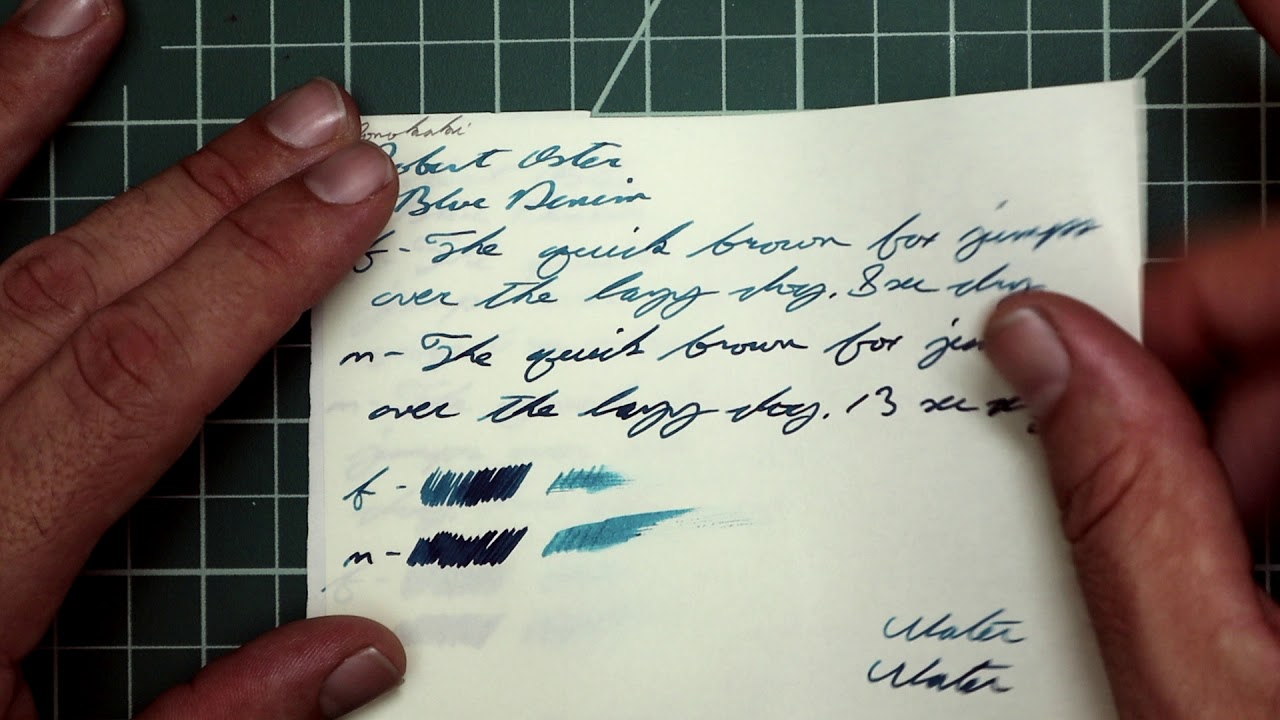 Robert Oster
Blue Denim
f - The quick brown fox jumps
over the lazy dog. 8 sec dry
m - The quick brown fox
over the lazy dog. 13 sec
f -
m -
Water
Water